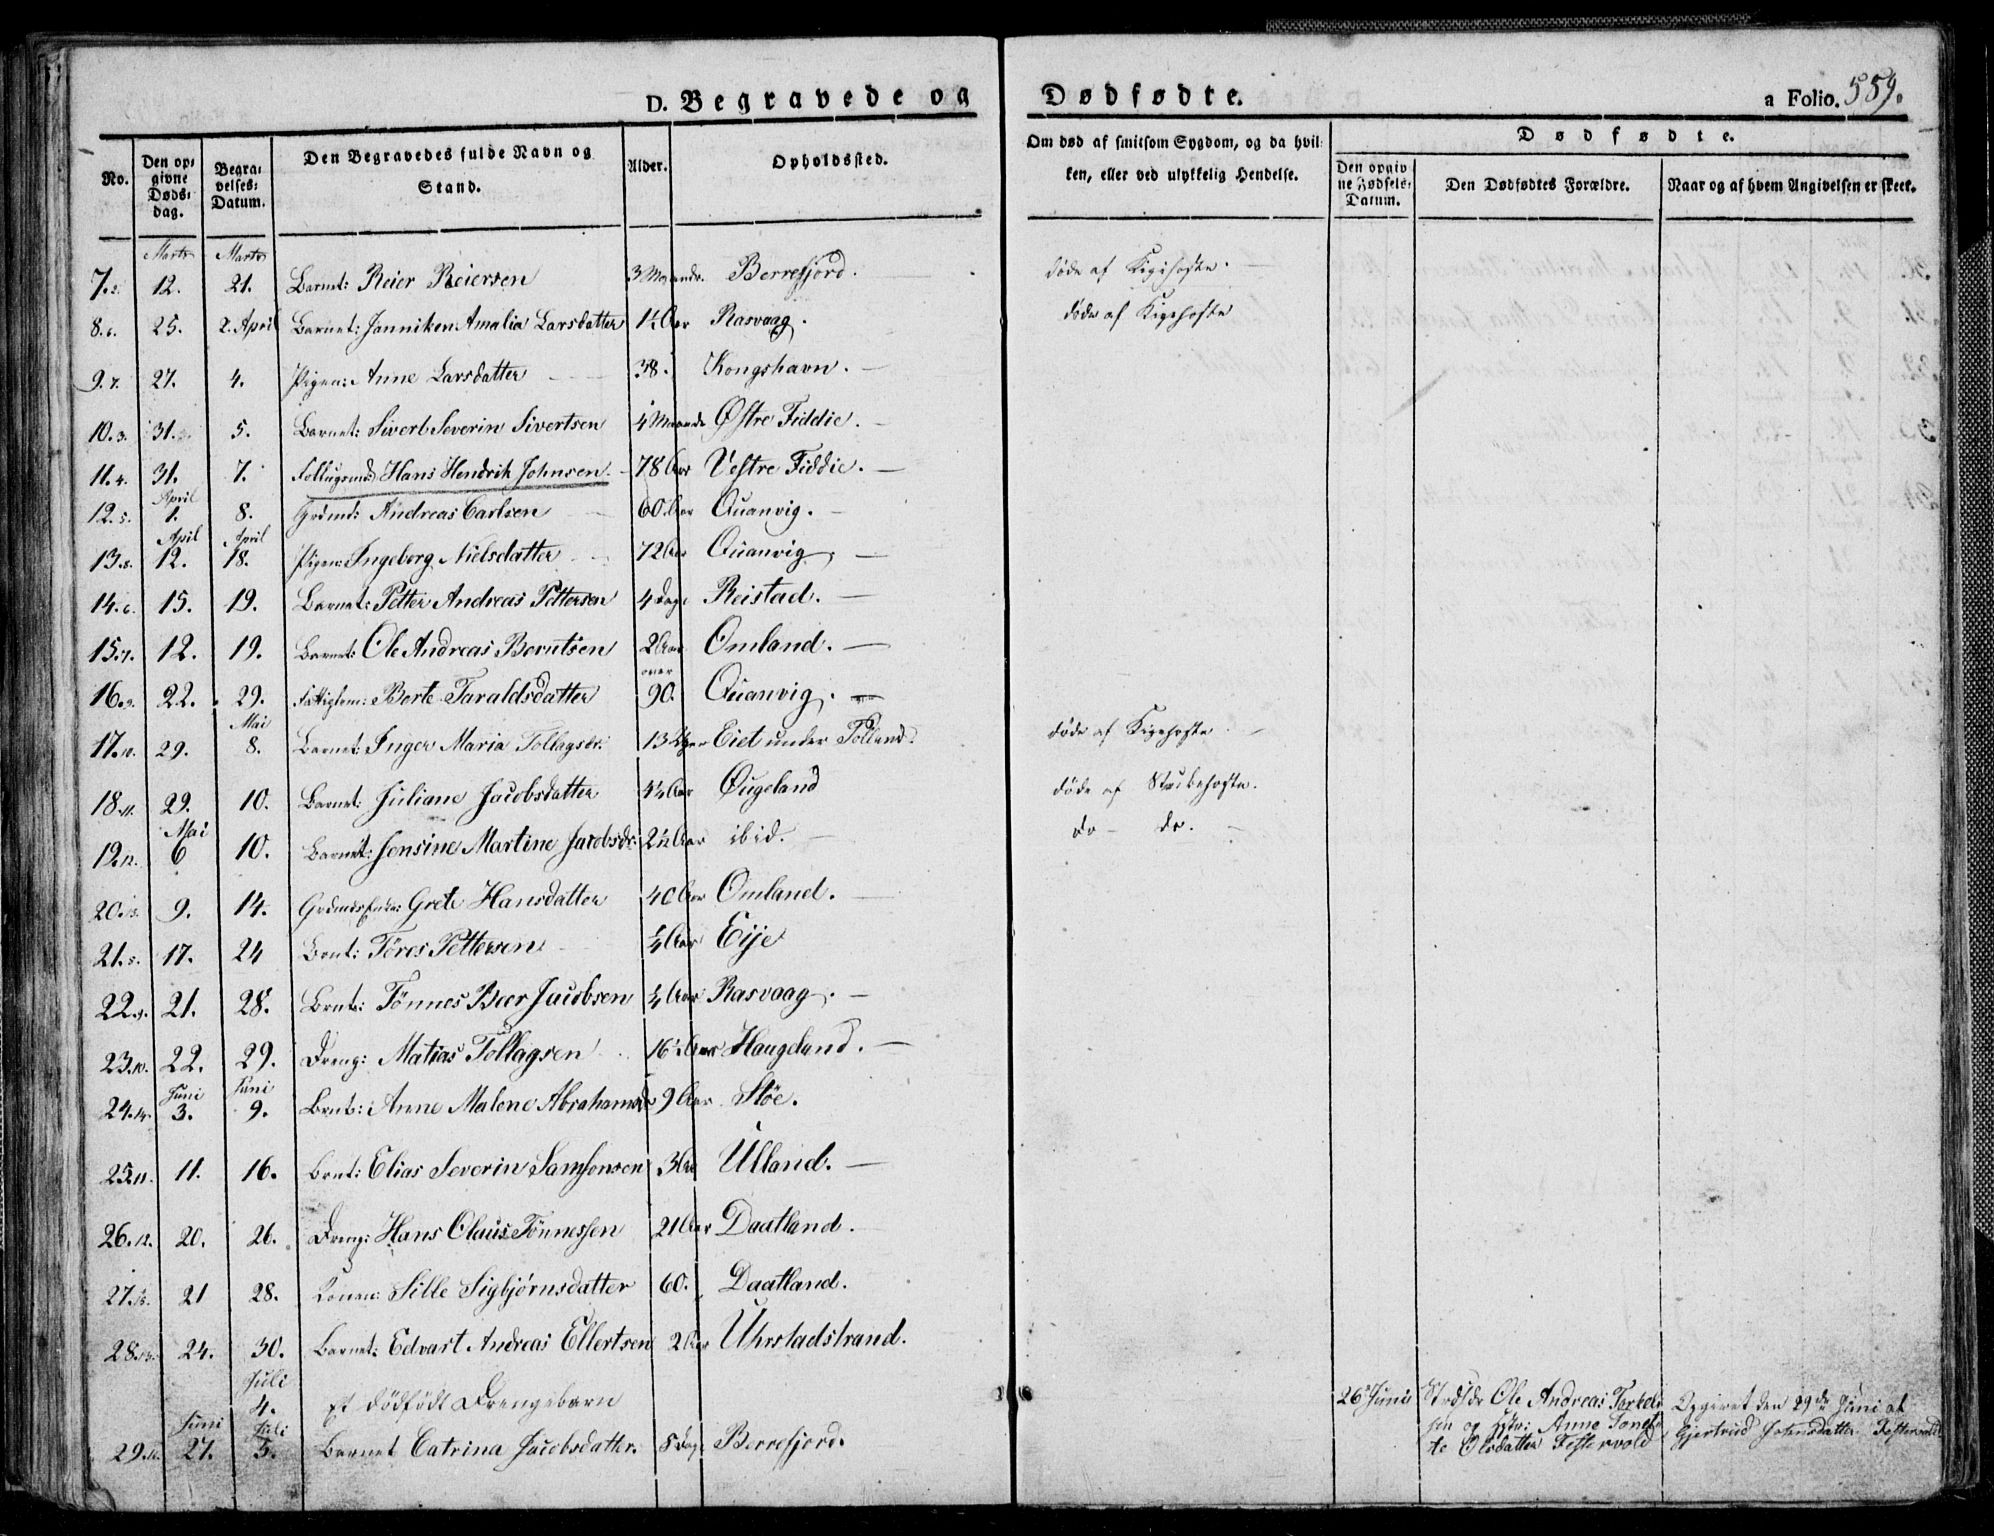 D. Begravede og
Dødfødte.
a Folio. 559.
No.
Den opgivne Døds-dag.
Begravelses-Datum.
Den Begravedes fulde Navn og Stand.
Alder.
Opholdssted.
Om død af smitsom Sygdom, og da hvilken, eller ved ulykkelig Hendelse.
Dødfødte.
Den opgivne Fødsels-Datum.
Den Dødfødtes Forældre.
Naar og af hvem Angivelsen er skeet.
Marts Marts
7. 2. 12. 21. Barnet: Reier Reiersen 3 Maaneder Berrefjord. døde af Kigehoste.
8. 6. 25. 2. April Barnet: Janniken Amalia Larsdatter 1½ Aar Rasvaag. døde af Kigehoste
9. 7. 27. 4. Pigen: Anne Larsdatter 38. Kongshavn.
10. 3. 31. 5. Barnet: Sivert Severin Sivertsen 4 Maaneder Østre Fiddie.
11. 4. 31. 7. Hans Hendrik Johnsen. 78 Aar Vestre Fiddie.
April
12. 5. 1. 8. Grdmd: Andreas Carlsen 60. Aar Quanvig.
April April
13. 8. 12. 18. Pigen: Ingeborg Nielsdatter 72 Aar Quanvig.
14. 6. 15. 19. Barnet: Petter Andreas Pettersen 4 Dage Reistad.
15. 7. 12. 19. Barnet: Ole Andreas Berntsen 2 Aar Omland.
over
16. 9. 22. 29. Fattiglem: Berte Taraldsdatter 90. Quanvig.
Mai
17. 10. 29. 8. Barnet: Inger Maria Tollagsdr: 13 Uger Eiet under Tolland. døde af Kigehoste
18. 11. 29. 10. Barnet: Juliane Jacobsdatter Aar Øugeland døde af Strubehoste.
Mai
19. 12. 6 10. Barnet: Jensine Martine Jacobsdr: 2½ Aar ibid. do - do.
20. 13. 9. 14. Grete Hansdatter 40 Aar Omland.
21. 8. 17. 24 Brnt: Tøres Pettersen ¼ Aar Eije
22. 9. 21. 28. Brnt: Tønnes Beer Jacobsen ¼ Aar Rasvaag.
23. 10. 22. 29. Dreng: Matias Tollagsen 16½ Aar Haugeland.
Juni Juni
24. 14. 3. 9. Brnt: Anne Malene Abrahamsdr 9 Aar Støe.
25. 11. 11. 16. Brnt: Elias Severin Samsonsen 3 Aar Ulland.
26. 12. 20. 26. Dreng: Hans Olaus Tønnessen 21 Aar Daatland.
27. 15. 21 28. Konen: Sille Sigbjørnsdatter 60. Daatland.
28. 13. 24. 30. Barnet: Edvart Andreas Ellertsen 2 Aar Uhrstadstrand.
Juli
4. Et dødfødt Drengebarn 26 Juni Strdsdr Ole Andreas Torkel- Opgivet den 29de Juni af
sen og Hstr: Anne Tonet- Gjertrud Johnsdatter Festervold
te Olsdatter Festervold
Juni Juli
29. 16. 27. 5. Barnet Catrina Jacobsdatter. 8 Dage Berrefjord.